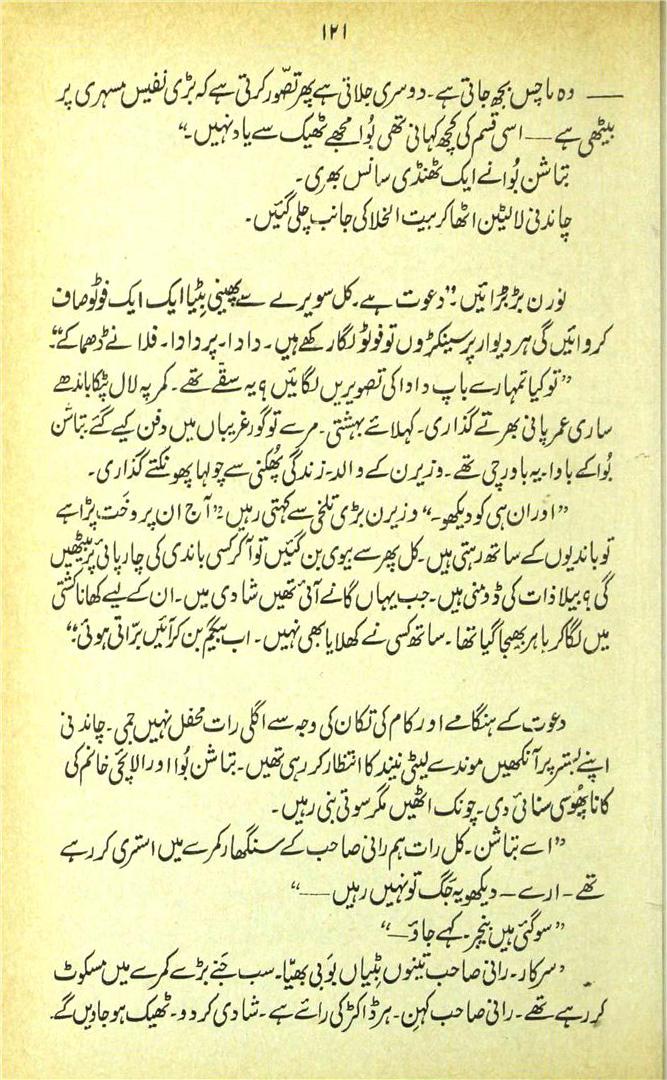 ۱۲۱
— وہ ماچس بجھ جاتی ہے۔ دوسری جلاتی ہے پھر تصوّر کرتی ہے کہ بڑی نفیس مسہری پر
بیٹھی ہے — اسی قسم کی کچھ کہانی تھی بُوا مجھے ٹھیک سے یاد نہیں۔“
بتاشن بُوا نے ایک ٹھنڈی سانس بھری۔
چاندنی لالٹین اٹھا کر بیت الخلا کی جانب چلی گئیں۔
نورن بڑبڑائیں۔ ”دعوت ہے۔ کل سویرے سے پھینی بِٹیا ایک ایک فوٹو صاف
کروائیں گی ہر دیوار پر سینکڑوں تو فوٹو لگا رکھے ہیں۔ دادا۔ پردادا۔ فلانے ڈھماکے“۔
”تو کیا تمہارے باپ دادا کی تصویریں لگائیں؟ یہ سقّے تھے۔ کمر پہ لال ٹپکا باندھے
ساری عمر پانی بھرتے گذاری۔ کہلائے بہشتی۔ مرے تو گورِ غریباں میں دفن کیے گئے بتاشن
بُوا کے باوا۔ یہ باورچی تھے۔ وزیرن کے والد۔ زندگی پُھکنی سے چولہا پھونکتے گذاری۔
”اور ان ہی کو دیکھو۔“ وزیرن بڑی تلخی سے کہتی رہیں۔ ”آج ان پر وخَت پڑا ہے
تو باندیوں کے ساتھ رہتی ہیں۔ کل پھر سے بیوی بن گئیں تو آکر کسی باندی کی چارپائی پر بیٹھیں
گی؟ بیلا ذات کی ڈومنی ہیں۔ جب یہاں گانے آئی تھیں شادی میں۔ ان کے لیے کھانا کشتی
میں لگا کر باہر بھیجا گیا تھا۔ ساتھ کسی نے کھلایا بھی نہیں۔ اب بیگم بن کر آئیں برّاتی ہوئی“۔
دعوت کے ہنگامے اور کام کی تکان کی وجہ سے اگلی رات محفل نہیں جمی۔ چاندنی
اپنے بستر پر آنکھیں موندے لیٹی نیند کا انتظار کر رہی تھیں۔ بتاشن بُوا اور الائچی خانم کی
کانا پُھوسی سنائی دی۔ چونک اٹھیں مگر سوتی بنی رہیں۔
”اے بتاشن۔ کل رات ہم رانی صاحب کے سنگھار کمرے میں استری کر رہے
تھے۔ ارے — دیکھو یہ جَگ تو نہیں رہیں —“
”سو گئی ہیں بنجر۔ کہے جاؤ —“
”سرکار۔ رانی صاحب تینوں بٹیاں بوبی بھیّا۔ سب جَنے بڑے کمرے میں مسکوٹ
کر رہے تھے۔ رانی صاحب کہِن۔ ہر ڈاکٹر کی رائے ہے۔ شادی کر دو۔ ٹھیک ہو جاویں گے۔